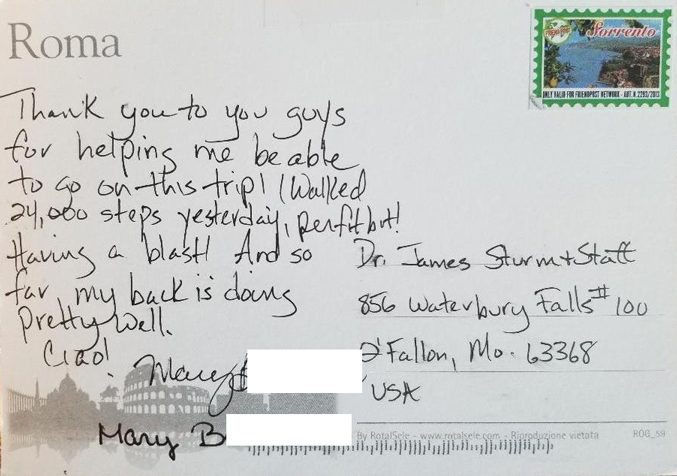 Roma
Thank you to you guys
for helping me be able
to go on this trip! I walked
24,000 steps yesterday, per fitbit!
Having a blast! And so
far, my back is doing
pretty well.
Ciao!
Mary
Mary B
Sorrento
ONLY VALID FOR FRIENDPOST NETWORK - AUT. N. 2293/2013
Dr. James Sturm + Staff
856 Waterbury Falls #100
O'Fallon, Mo. 63368
USA
By RotalSele - www.rotalsele.com - Riproduzione vietata
ROG_S9